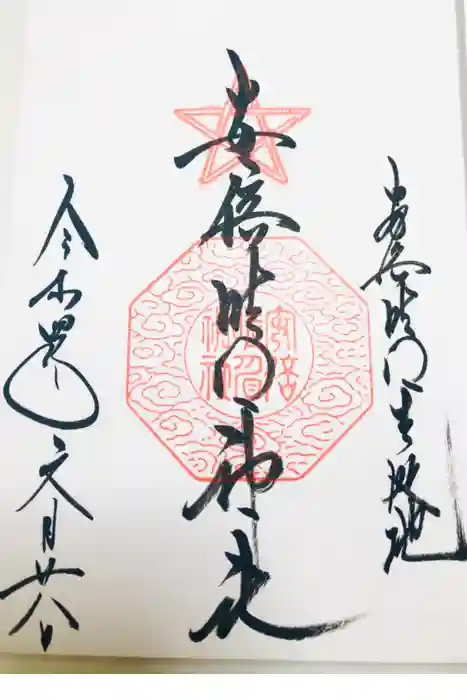 安倍晴明生誕地
安倍晴明神社
令和四年文月廿八日
安倍
晴明
神社